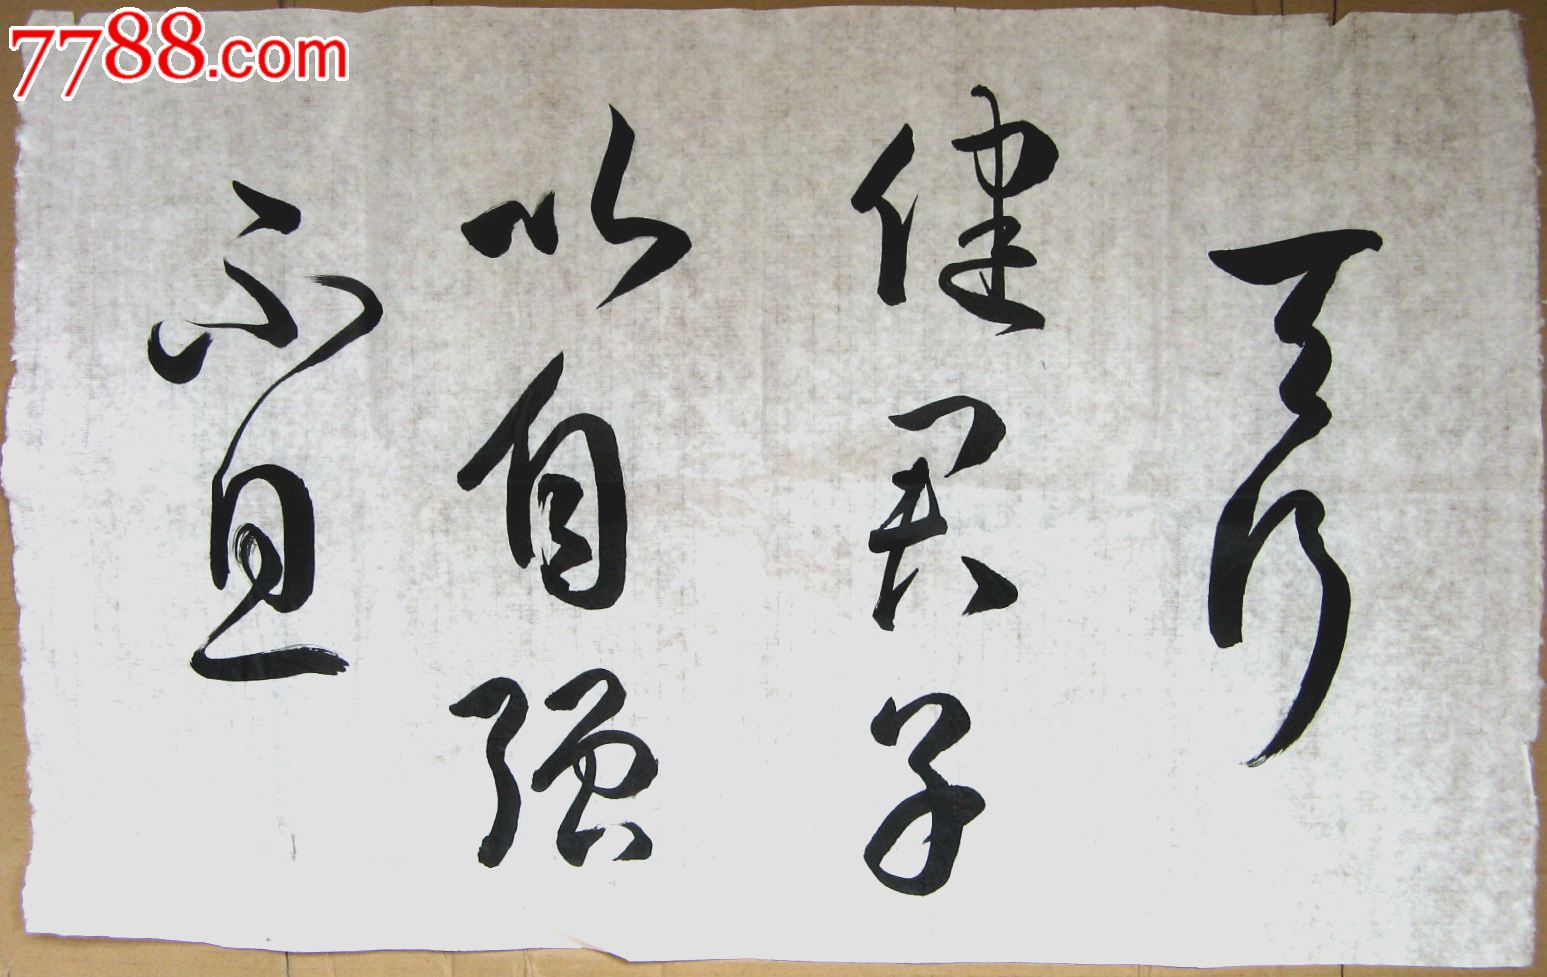 7788.com
天行
健君子
以自强
不息